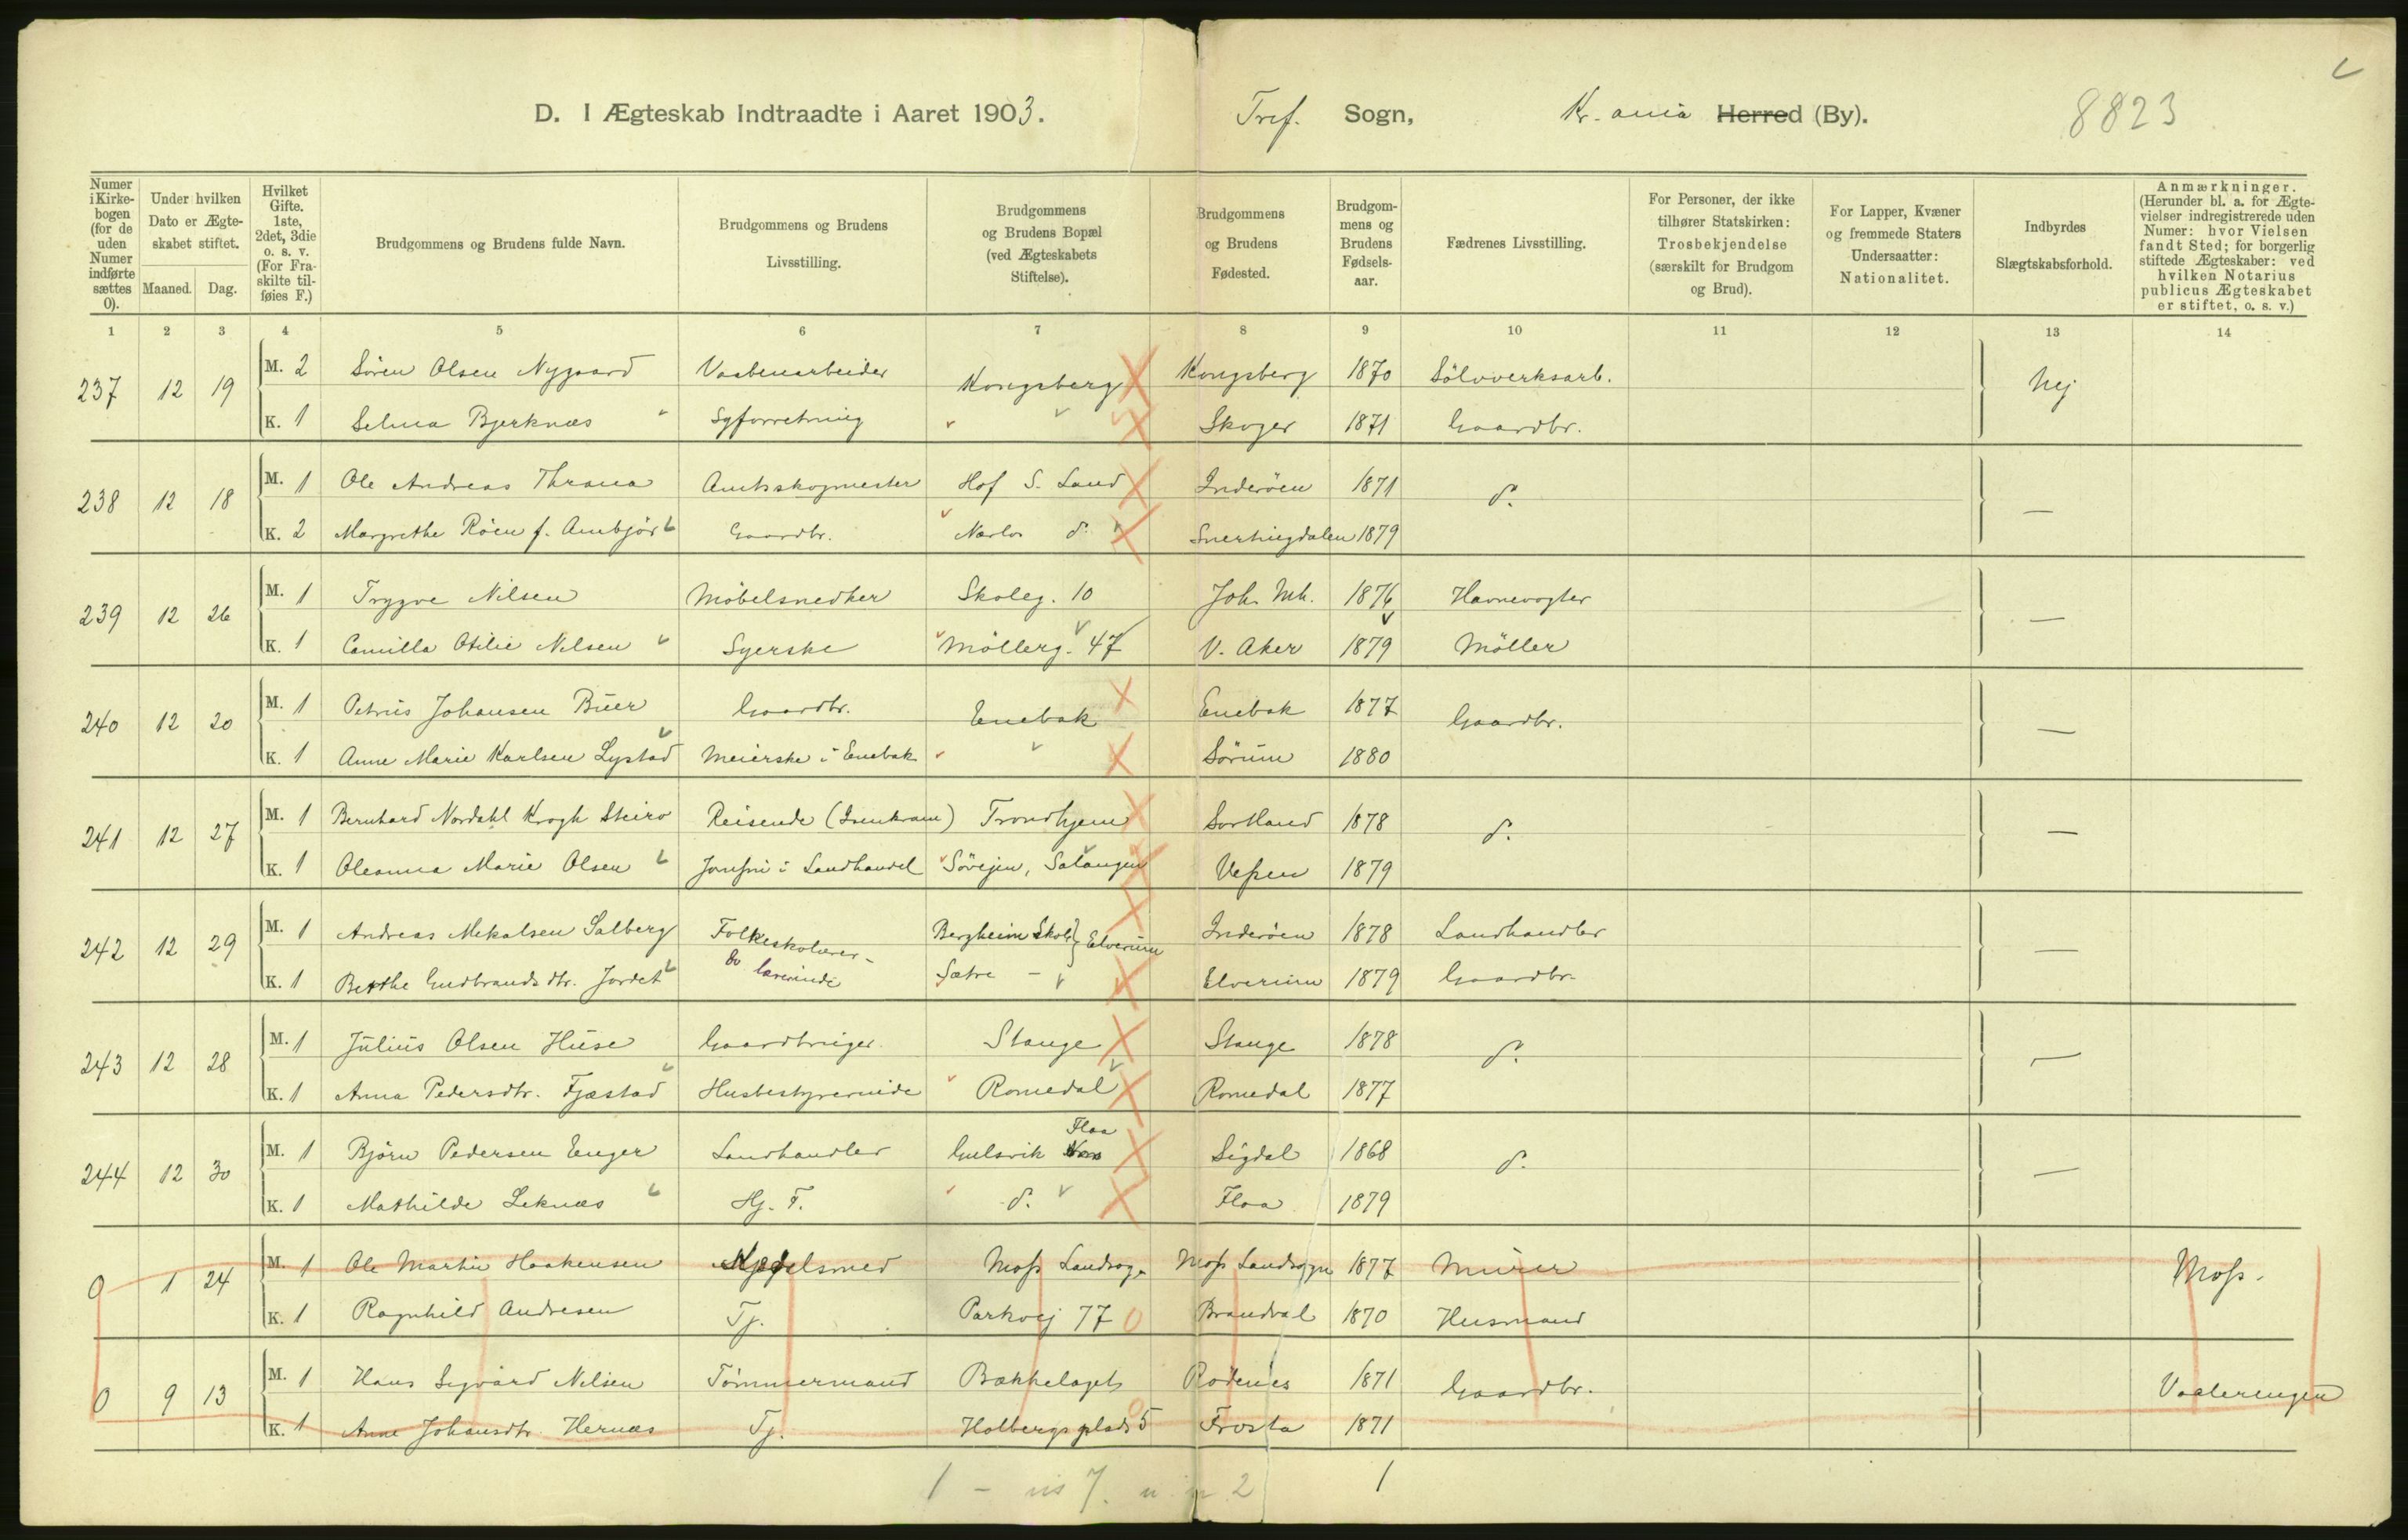 D. I Ægteskab Indtraadte i Aaret 1903. Tref. Sogn, Kr.ania Herred (By). 8823
Numer i Kirkebogen (for de uden Numer indførte sættes 0).
Under hvilken Dato er Ægteskabet stiftet.
Maaned. Dag.
Hvilket Gifte. 1ste, 2det, 3die o. s. v. (For Fraskilte tilføies F.)
Brudgommens og Brudens fulde Navn.
Brudgommens og Brudens Livsstilling.
Brudgommens og Brudens Bopæl (ved Ægteskabets Stiftelse).
Brudgommens og Brudens Fødested.
Brudgommens og Brudens Fødselsaar.
Fædrenes Livsstilling.
For Personer, der ikke tilhører Statskirken: Trosbekjendelse (særskilt for Brudgom og Brud).
For Lapper, Kvæner og fremmede Staters Undersaatter: Nationalitet.
Indbyrdes Slægtskabsforhold.
Anmærkninger. (Herunder bl. a. for Ægtevielser indregistrerede uden Numer: hvor Vielsen fandt Sted; for borgerlig stiftede Ægteskaber: ved hvilken Notarius publicus Ægteskabet er stiftet, o. s. v.)
1 2 3 4 5 6 7 8 9 10 11 12 13 14
237 12 19 M. 2 Søren Olsen Nygaard Vaabenarbeider Kongsberg Kongsberg 1870 Sölvverksarb. Nej
K. 1 Selma Bjerknæs Syforretning " Skoger 1871 Gaardbr.
238 12 18 M. 1 Ole Andreas Thrana Amtsskogmester Hof S. Land Inderöen 1871 d°. —
K. 2 Margrethe Röen f. Ambjör Gaardbr. Nærlos d°. Snertingdalen 1879
239 12 26 M. 1 Trygve Nilsen Möbelsnedker Skoleg. 10 Joh. Mh. 1876 Havnevogter —
K. 1 Camilla Otilie Nilsen Syerske Möllerg. 47 V. Aker 1879 Möller
240 12 20 M. 1 Petrus Johansen Buer Gaardbr. Enebak Enebak 1877 Gaardbr. —
K. 1 Anne Marie Karlsen Lystad Meierske i Enebak " Sörum 1880
241 12 27 M. 1 Bernhard Nordahl Krogh Steiro Reisende (Isenkram) Trondhjem Sortland 1878 d°. —
K. 1 Oleanna Marie Olsen Jomfru i Landhandel Sövejen, Salangen Vefsen 1879
242 12 29 M. 1 Andreas Mekalsen Salberg Folkeskolærer- Bergheim Skole } Elverum Inderöen 1878 Landhandler —
K. 1 Berthe Gudbrandsdtr. Jordet do lærerinde Sætre - Elverum 1879 Gaardbr.
243 12 28 M. 1 Julius Olsen Huse Gaardbruger Stange Stange 1878 d°. —
K. 1 Anna Pedersdtr. Fjæstad Husbestyrerinde Romedal Romedal 1877
244 12 30 M. 1 Björn Pedersen Enger Landhandler Gulsvik Flaa Sigdal 1868 d°. —
K. 1 Mathilde Leknæs Hj. F. d°. Flaa 1879
0 1 24 M. 1 Ole Martin Haakensen Kjedelsmed Moss Landsogn Moss Landsogn 1877 Murer Moss.
K. 1 Ragnhild Andresen Tj. Parkvej 77 0 Brandval 1870 Husmand
0 9 13 M. 1 Hans Sigvard Nilsen Tömmermand Bækkelaget Rödenes 1871 Gaardbr. Vaalerengen
K. 1 Anne Johansdtr. Hernæs Tj. Holbergsplads 5 Frosta 1871